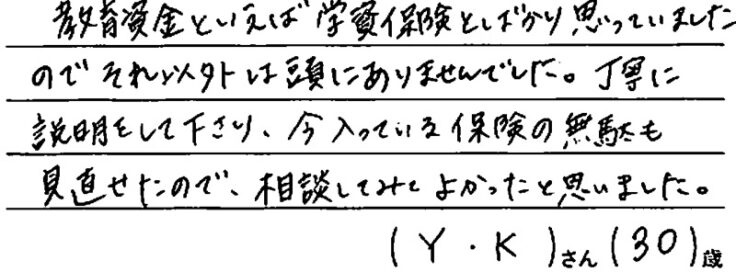 教育資金といえば学資保険とばかり思っていました
のでそれ以外は頭にありませんでした。丁寧に
説明をして下さり、今入っている保険の無駄も
見直せたので、相談してみてよかったと思いました。
(Y・K)さん(30)歳